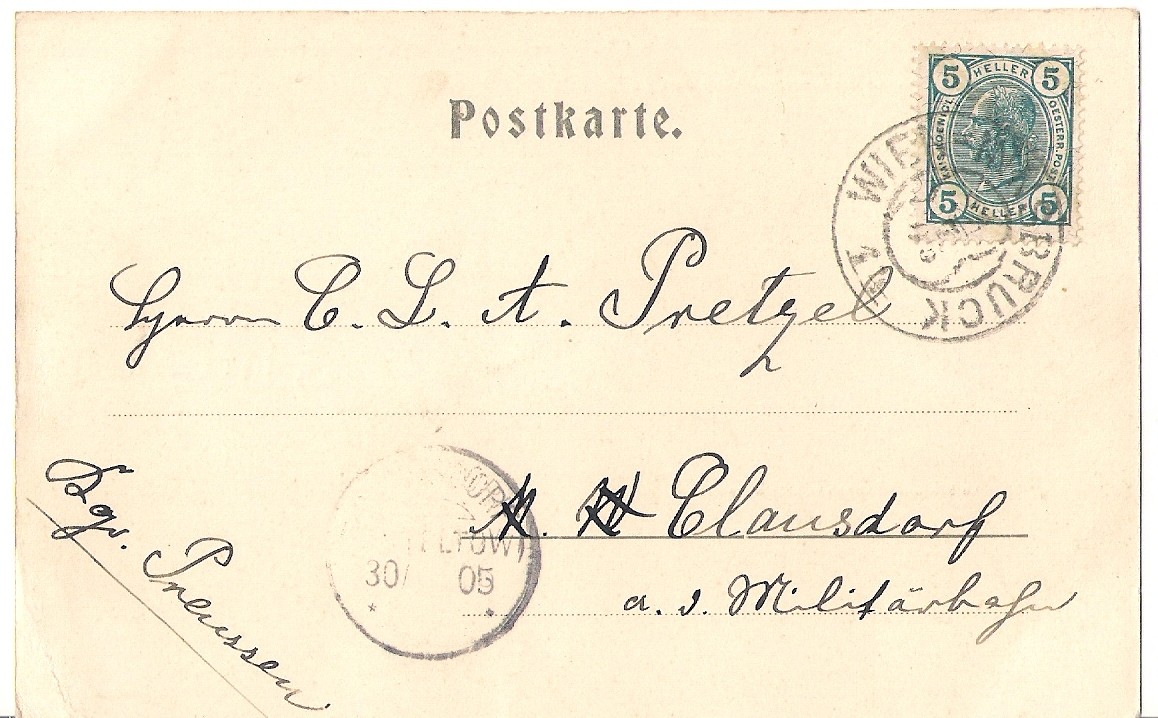 Postkarte.
5 HELLER 5
OESTERR. POST
5 HELLER 5
WIEN
BRUCK
Herrn C. L. A. Pretzel
Clausdorf
a. d. Militärbahn
Kgr. Preussen
TELTOW
30/ 05